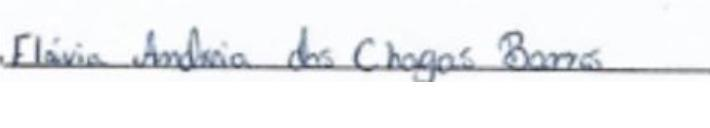 Flávia Andreia das Chagas Barros